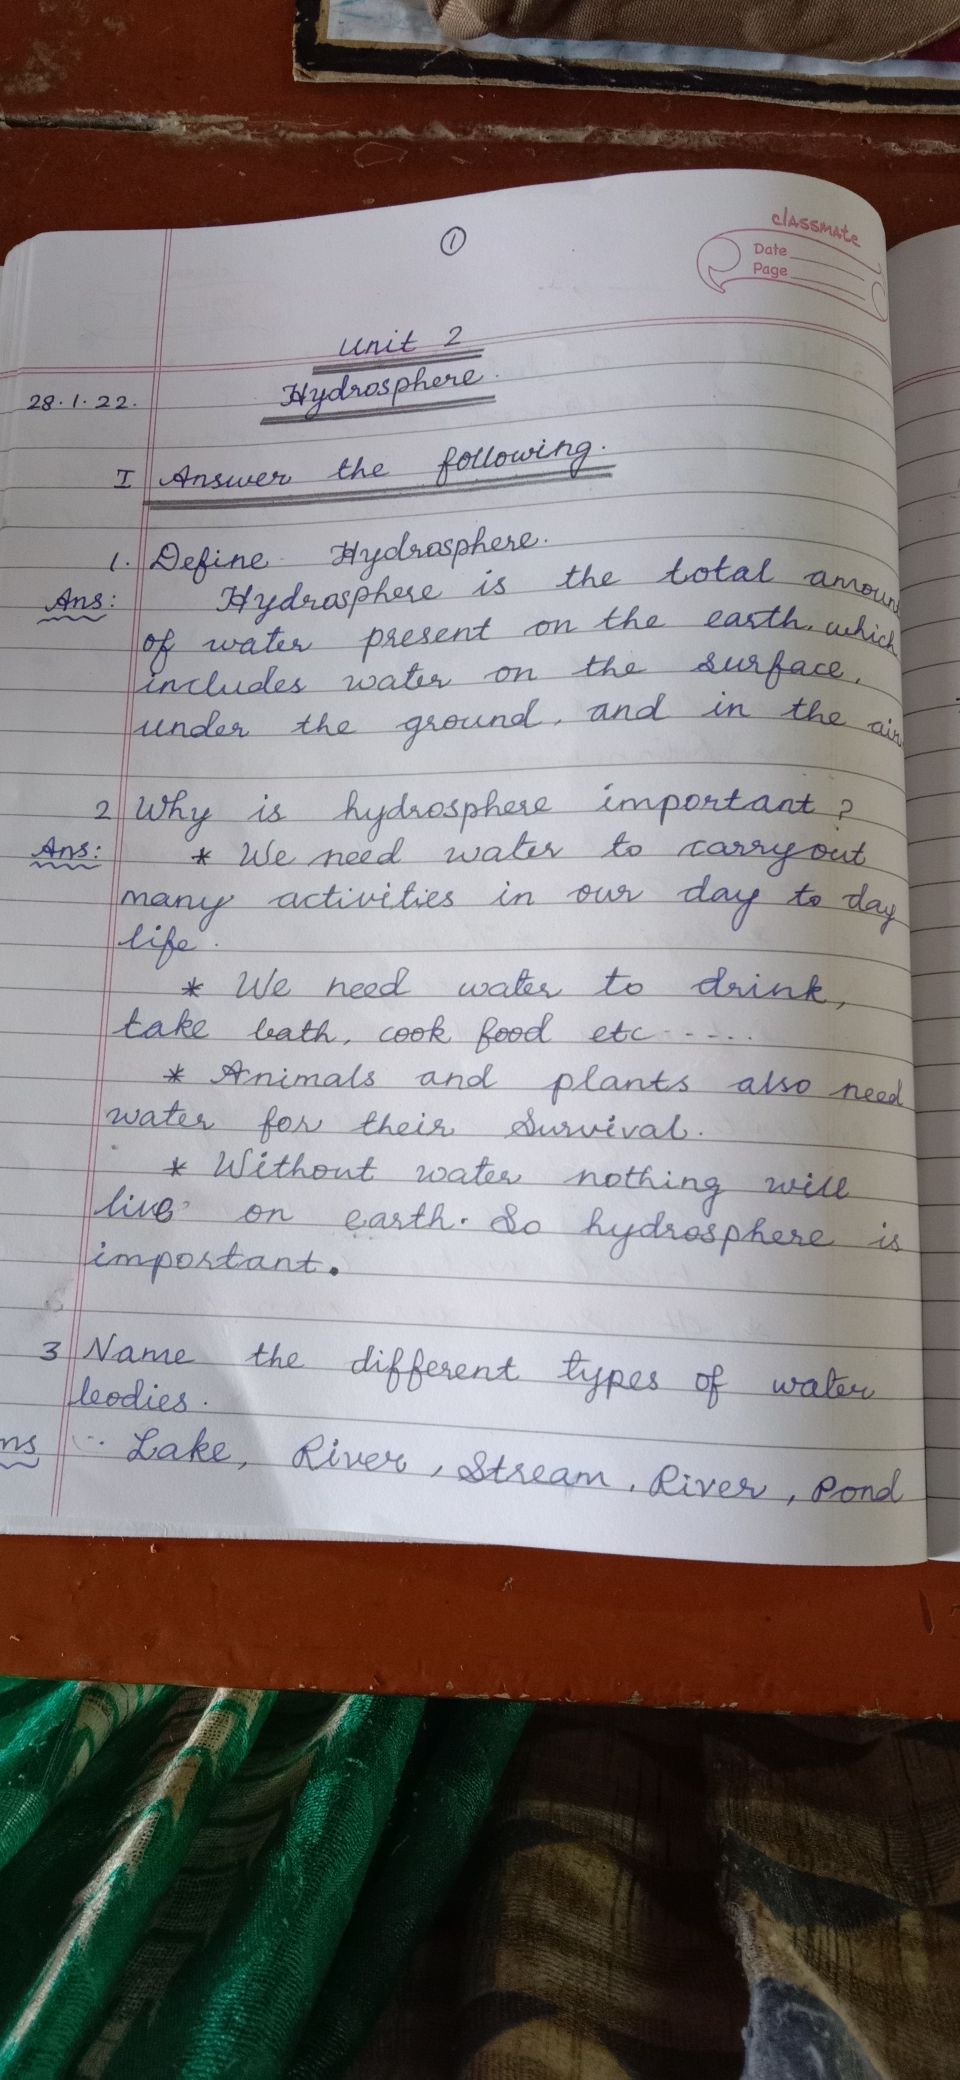 ①
classmate
Date
Page
Unit 2
28.1.22. Hydrosphere.
I Answer the following.
1. Define Hydrosphere.
Ans: Hydrosphere is the total amoun
of water present on the earth, which
includes water on the surface,
under the ground, and in the air
2 Why is hydrosphere important?
Ans: * We need water to carryout
many activities in our day to day
life.
* We need water to drink,
take bath, cook food etc.....
* Animals and plants also need
water for their Survival.
* Without water nothing will
live on earth. So hydrosphere is
important.
3 Name the different types of water
bodies.
ns Lake, River, Stream, River, Pond